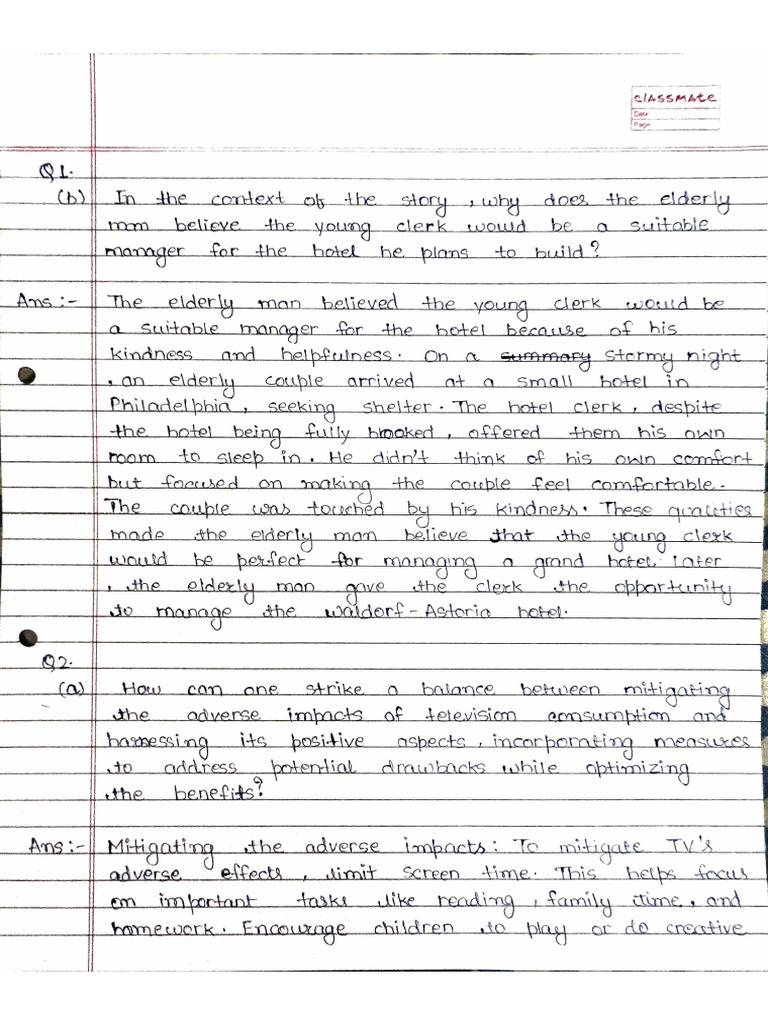 classmate
Date
Page
Q1.
(b) In the context of the story , why does the elderly
man believe the young clerk would be a suitable
manager for the hotel he plans to build?
Ans :- The elderly man believed the young clerk would be
a suitable manager for the hotel because of his
kindness and helpfulness. On a summary stormy night
, an elderly couple arrived at a small hotel in
Philadelphia , seeking shelter. The hotel clerk , despite
the hotel being fully booked , offered them his own
room to sleep in. He didn't think of his own comfort
but focused on making the couple feel comfortable.
The couple was touched by his kindness. These qualities
made the elderly man believe that the young clerk
would be perfect for managing a grand hotel. Later
, the elderly man gave the clerk the opportunity
to manage the Waldorf - Astoria hotel.
Q2.
(a) How can one strike a balance between mitigating
the adverse impacts of television consumption and
harnessing its positive aspects , incorporating measures
to address potential drawbacks while optimizing
the benefits?
Ans :- Mitigating the adverse impacts : To mitigate TV's
adverse effects , limit screen time. This helps focus
on important tasks like reading , family time , and
homework. Encourage children to play or do creative